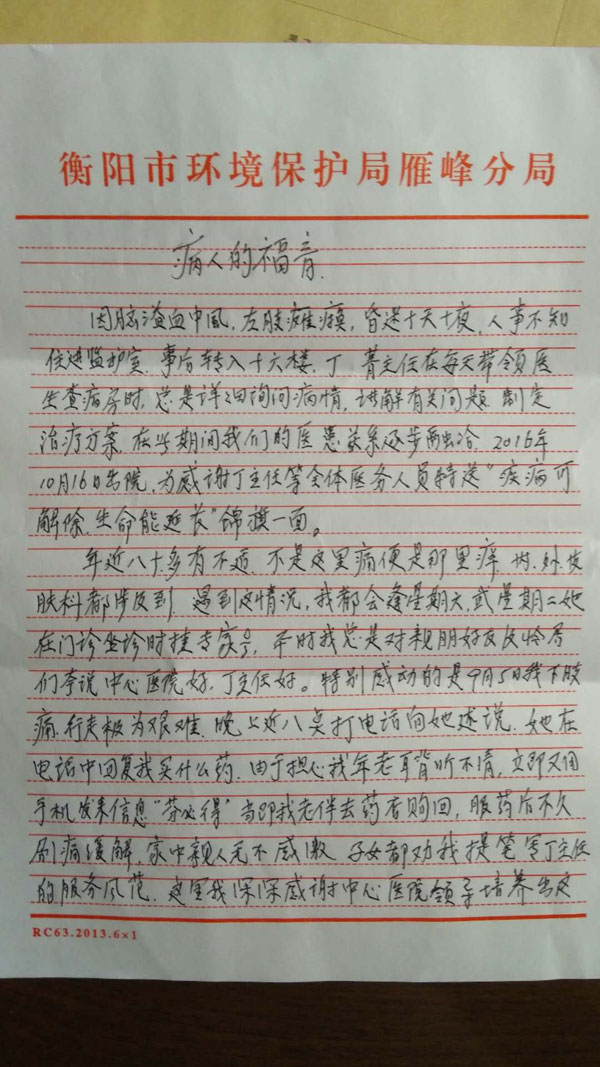 衡阳市环境保护局雁峰分局
病人的福音.
因脑溢血中风,左肢瘫痪,昏迷十天十夜,人事不知
住进监护室.事后转入十六楼,丁菁主任在每天带领医
生查病房时,总是详细询问病情,讲解有关问题.制定
治疗方案,在此期间我们的医患关系逐步融洽.2016年
10月16日出院,为感谢丁主任等全体医务人员特送"疾病可
解除,生命能延长"锦旗一面。
年近八十,多有不适.不是这里痛便是那里痒.内、外、皮
肤科都涉及到.遇到这情况,我都会逢星期六,或星期二她
在门诊坐诊时挂专家号,平时我总是对亲朋好友及怜居
们夸说中心医院好,丁主任好。特别感动的是9月5日我下肢
痛,行走极为艰难.晚上近八点打电话向她述说.她在
电话中回复我买什么药.由于担心我年老耳背听不清,立即又用
手机发来信息"芬必得"当即我老伴去药店购回,服药后不久
剧痛缓解.家中亲人无不感激.子女都劝我提笔写丁主任
的服务风范.这里我深深感谢中心医院领导培养出这
RC63.2013.6×1